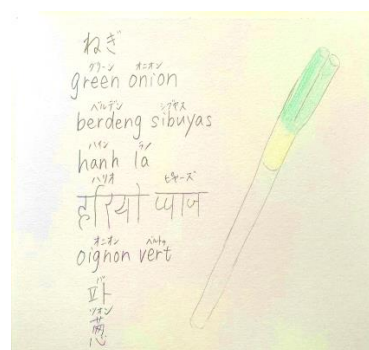 ねぎ
グリーン オニオン
green onion
ベルデン シブヤス
berdeng sibuyas
ハイン ラ
hanh la
ハリオ ピヤーズ
हरियो प्याज
オニオン ベルトゥ
oignon vert
ツオン
葱